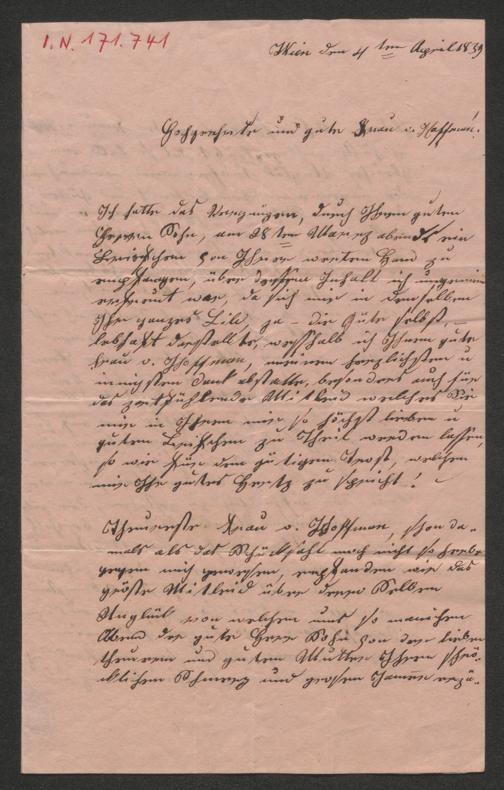 I. N. 171.741
Wien den 4 ten April 1839
Hochgeehrte und gute Frau v. Hoffman!
Ich hatte das Vergnügen, durch Ihren guten
Herrn Sohn, am 28 ten Maerz abends ein
Briefchen von Ihrer werten Hand zu
empfangen, über dessen Inhalt ich ungemein
erfreut war, da sich mir in demselben
Ihr ganzes Bild, ja – die Güte selbst,
lebhaft darstellte, wesshalb ich Ihnen gute
Frau v. Hoffman, meinen herzlichsten u
innigsten Dank abstatte, besonders auch für
das zartfühlende Mitleid welches Sie
mir in Ihrem mir so höchst lieben u
guten Briefchen zu Theil werden lassen,
so wie für den gütigen Trost, welchen
mir Ihr gutes Hertz zu spricht! –
Theuerste Frau v. Hoffman, schon da-
mals als das Schücksahl noch nicht so herbe
gegen mich gewesen, empfanden wir das
größte Mitleid über deren Selben
Unglük von welchem uns so manchen
Abend der gute Herr Sohn von der lieben
theuren und guten Mutter Ihren schrö-
klichen Schmerz und grosen Jammer erzä-